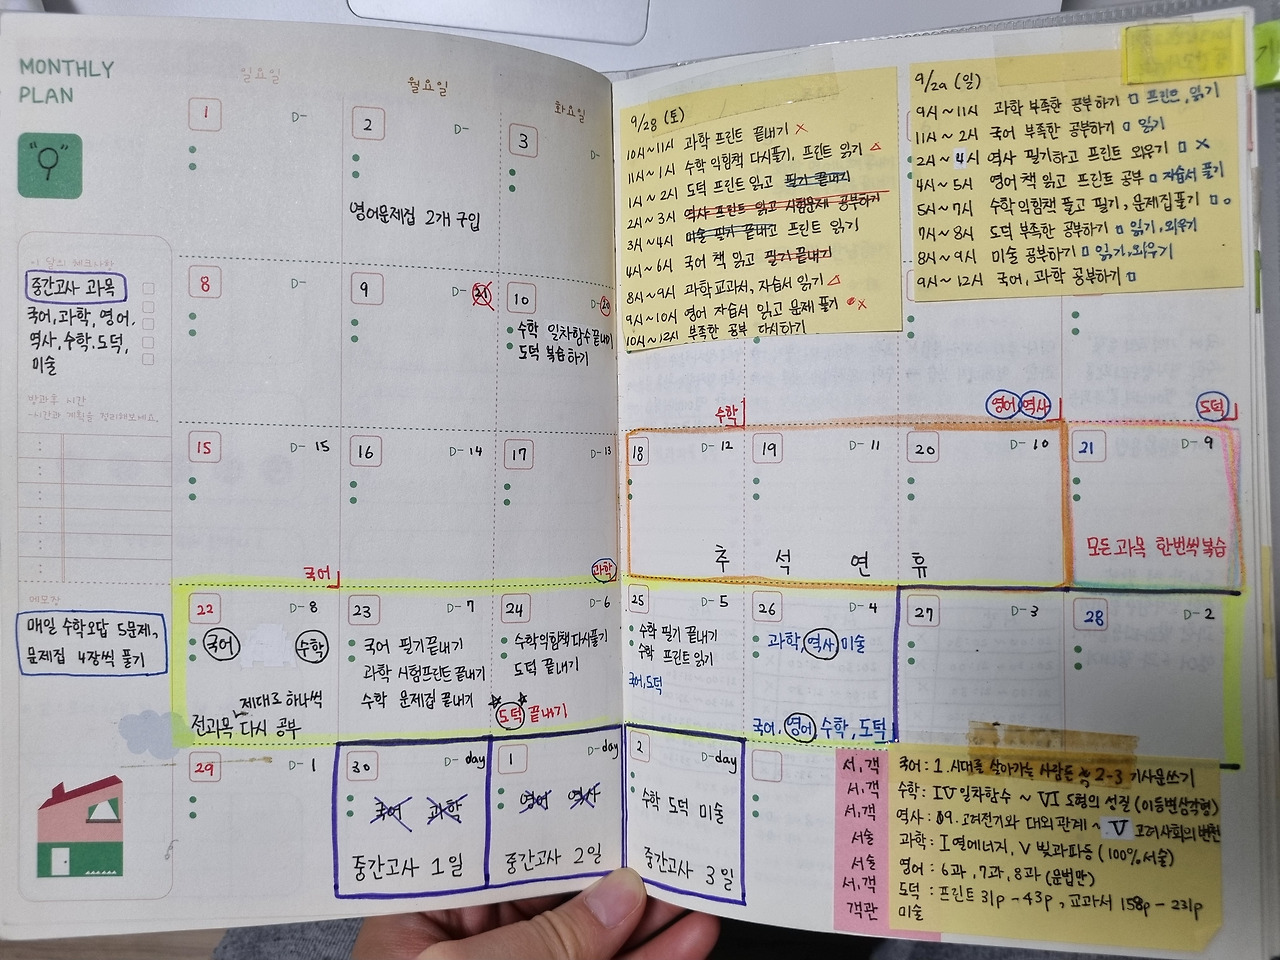 MONTHLY
PLAN
일요일
월요일
화요일
1 D-
2 D-
영어문제집 2개 구입
3 D-
이 달의 체크나하
중간고사 과목
국어,과학,영어,
역사,수학,도덕,
미술
방과후 시간
-시간과 계획을 정리해보세요.
메모장
매일 수학오답 5문제,
문제집 4장씩 풀기
8 D-
9 D-21
10 D-20
수학 일차함수 끝내기
도덕 복습하기
9/28 (토)
10시~11시 과학 프린트 끝내기 ×
11시~1시 수학 익힘책 다시풀기, 프린트 읽기 △
1시~2시 도덕 프린트 읽고 필기 끝내기
2시~3시 역사 프린트 읽고 시험문제 공부하기
3시~4시 미술 필기 끝내고 프린트 읽기
4시~6시 국어 책 읽고 필기 끝내기
8시~9시 과학교과서, 자습서 읽기 △
9시~10시 영어 자습서 읽고 문제 풀기 ×
10시~12시 부족한 공부 다시하기
9/29 (일)
9시~11시 과학 부족한 공부하기 □ 프린트, 읽기
11시~2시 국어 부족한 공부하기 □ 읽기
2시~4시 역사 필기하고 프린트 외우기 □ ×
4시~5시 영어 책 읽고 프린트 공부 □ 자습서 풀기
5시~7시 수학익힘책 풀고 필기, 문제집풀기 □ ○
7시~8시 도덕 부족한 공부하기 □ 읽기, 외우기
8시~9시 미술 공부하기 □ 읽기,외우기
9시~12시 국어, 과학 공부하기 □
수학
영어 역사
도덕
15 D-15
국어
16 D-14
17 D-13
과학
18 D-12
19 D-11
20 D-10
추 석 연 휴
21 D-9
모든 과목 한번씩 복습
22 D-8
국어 수학
제대로 하나씩
전과목 다시 공부
23 D-7
국어 필기끝내기
과학 시험프린트 끝내기
수학 문제집 끝내기
24 D-6
수학익힘책 다시풀기
도덕 끝내기
도덕 끝내기
25 D-5
수학 필기 끝내기
수학 프린트 읽기
국어,도덕
26 D-4
과학,역사 미술
국어, 영어, 수학, 도덕
27 D-3
28 D-2
29 D-1
30 D-day
국어 과학
중간고사 1일
1 D-day
영어 역사
중간고사 2일
2 D-day
수학 도덕 미술
중간고사 3일
서,객
서,객
서,객
서술
서술
서,객
객관
국어 : 1. 시대를 살아가는 사람들 2-3 기사문쓰기
수학 : IV 일차함수 ~ VI 도형의 성질 (이등변삼각형)
역사 : 09. 고려전기와 대외관계 ~ V 고려사회의 변천
과학 : I 열에너지, V 빛과파동 (100%서술)
영어 : 6과, 7과, 8과 (문법만)
도덕 : 프린트 31p - 43p, 교과서 158p - 231p
미술